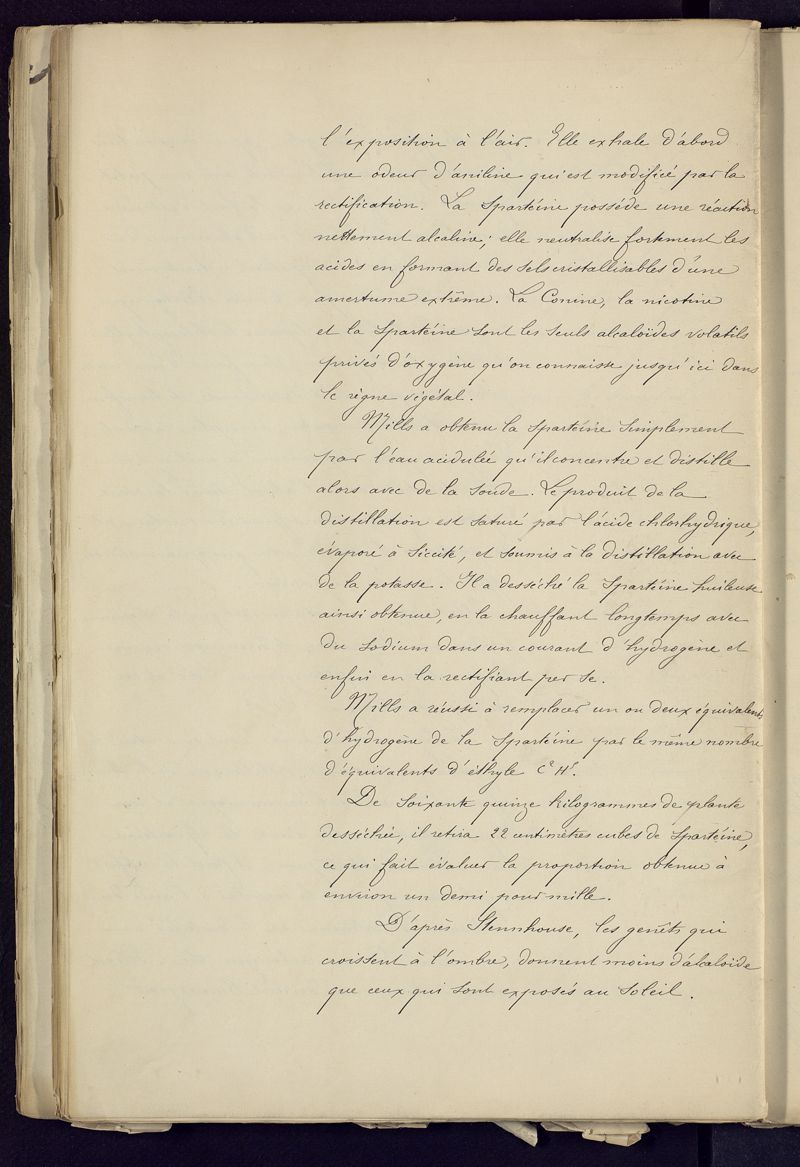 l'exposition à l'air. Elle exhale d'abord
une odeur d'aniline qui est modifiée par la
rectification. La Spartéine possède une réaction
nettement alcaline; elle neutralise fortement les
acides en formant des sels cristallisables d'une
amertume extrême. La Conine, la nicotine
et la Spartéine sont les seuls alcaloïdes volatils
privés d'oxygène qu'on connaisse jusqu'ici dans
le règne végétal.
Mills a obtenu la Spartéine simplement
par l'eau acidulée qu'il concentre et distille
alors avec de la soude. Le produit de la
distillation est saturé par l'acide chlorhydrique,
évaporé à siccité, et soumis à la distillation avec
de la potasse. Il a desséché la Spartéine huileuse
ainsi obtenue, en la chauffant longtemps avec
du sodium dans un courant d'hydrogène et
enfin en la rectifiant per se.
Mills a réussi à remplacer un ou deux équivalents
d'hydrogène de la Spartéine par le même nombre
d'équivalents d'éthyle C² H⁵.
De soixante quinze kilogrammes de plante
desséchée, il retira 22 centimètres cubes de Spartéine,
ce qui fait évaluer la proportion obtenue à
environ un demi pour mille.
D'après Stennhouse, les genêts qui
croissent à l'ombre, donnent moins d'alcaloïde
que ceux qui sont exposés au soleil.